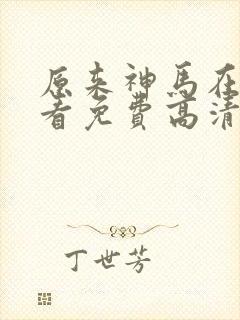 原来神马在
看免费高清
丁世芳